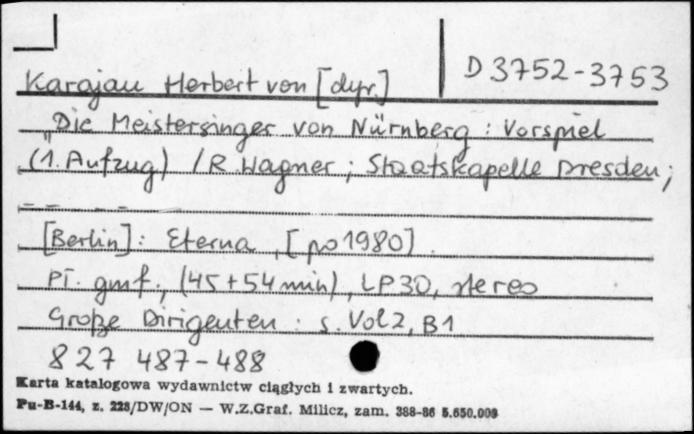 D 3752-3753
Karajan Herbert von [dyr.]
"Die Meistersinger von Nürnberg : Vorspiel
(1. Aufzug) / R. Wagner ; Staatskapelle Dresden ;
-- --
[Berlin] : Eterna, [po 1980].
Pł. gmf., (45+54 min), LP30, stereo
Große Dirigenten : s. Vol 2, B1
8 27 487-488
Karta katalogowa wydawnictw ciągłych i zwartych.
Pu-B-144, z. 228/DW/ON — W.Z.Graf. Milicz, zam. 388-86 5.650.000